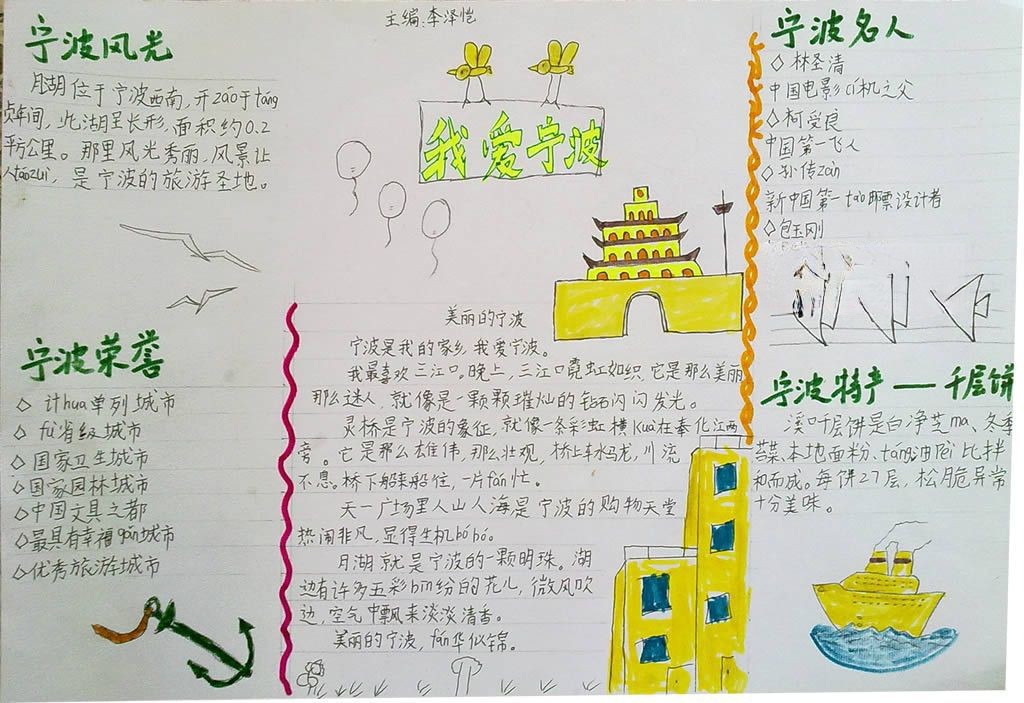 主编:李泽恺
宁波风光
月湖位于宁波西南,开záo于táng
贞年间,此湖呈长形,面积约0.2
平方公里。那里风光秀丽,风景让
人táozuì,是宁波的旅游圣地。
我爱宁波
宁波名人
◇林圣清
中国电影cí机之父
◇柯受良
中国第一飞人
◇孙传zén
新中国第一tào邮票设计者
◇包玉刚
宁波荣誉
◇计hua单列城市
◇fù省级城市
◇国家卫生城市
◇国家园林城市
◇中国文具之都
◇最具有幸福gǎn城市
◇优秀旅游城市
美丽的宁波
宁波是我的家乡,我爱宁波。
我最喜欢三江口。晚上,三江口霓虹如织,它是那么美丽
那么迷人,就像是一颗颗璀灿的钻石闪闪发光。
灵桥是宁波的象征,就像一条彩虹横kuà在奉化江两
旁。它是那么雄伟,那么壮观,桥上车水马龙,川流
不息。桥下船来船往,一片fán忙。
天一广场里人山人海是宁波的购物天堂
热闹非凡,显得生机bóbó。
月湖就是宁波的一颗明珠。湖
边有许多五彩bīn纷的花儿,微风吹
过,空气中飘来淡淡清香。
美丽的宁波,fán华似锦。
宁波特产——千层饼
溪口千层饼是白净芝ma、冬季
苔菜、本地面粉、táng、油
比拌
和而成。每饼27层,松脆异常
十分美味。